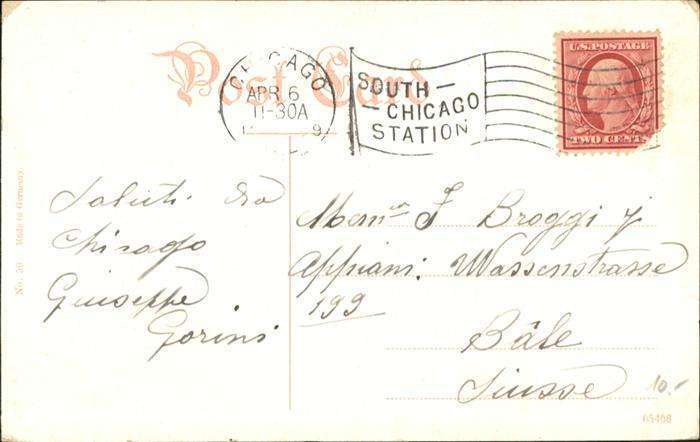 Post Card
CHICAGO
APR 6
11-30A
SOUTH
CHICAGO
STATION
U.S. POSTAGE
TWO CENTS
No. 50 Made in Germany
Saluti da
Chicago
Giuseppe
Gorini
F Broggi
Appiani. Wassenstrasse
199
Bâle
Suisse
10.-